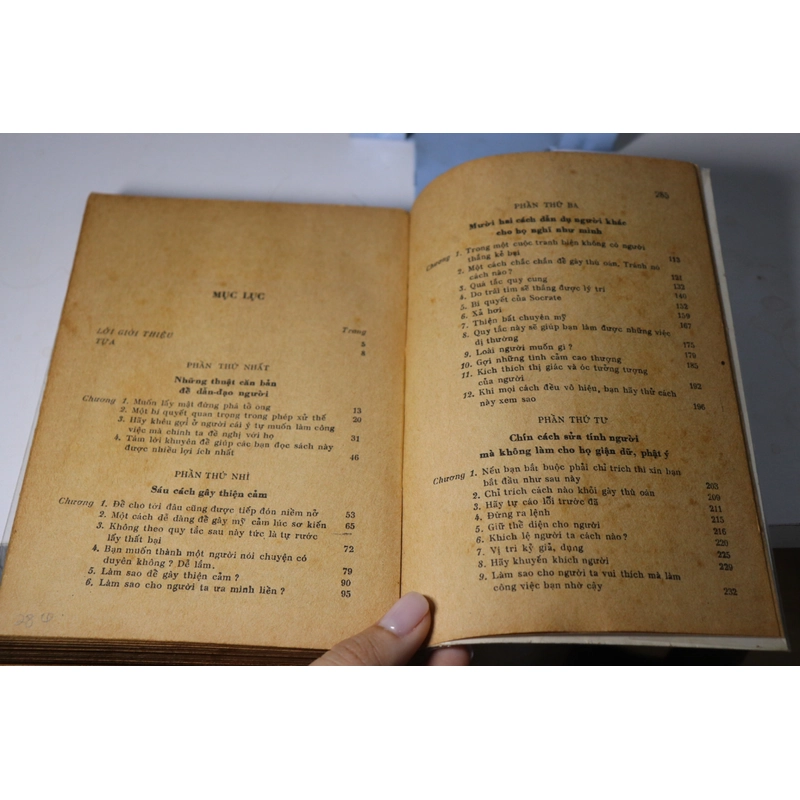 MỤC LỤC
Trang
LỜI GIỚI THIỆU 5
TỰA 8
PHẦN THỨ NHẤT
Những thuật căn bản
để dẫn-đạo người
Chương 1. Muốn lấy mật đừng phá tổ ong 13
2. Một bí quyết quan trọng trong phép xử thế 20
3. Hãy khêu gợi ở người cái ý tự muốn làm công
việc mà chính ta đề nghị với họ 31
4. Tám lời khuyên để giúp các bạn đọc sách này
được nhiều lợi ích nhất 46
PHẦN THỨ NHÌ
Sáu cách gây thiện cảm
Chương 1. Để cho tới đâu cũng được tiếp đón niềm nở 53
2. Một cách dễ dàng để gây mỹ cảm lúc sơ kiến 65
3. Không theo quy tắc sau này tức là tự rước
lấy thất bại 72
4. Bạn muốn thành một người nói chuyện có
duyên không ? Dễ lắm. 79
5. Làm sao để gây thiện cảm ? 90
6. Làm sao cho người ta ưa mình liền ? 95
265
PHẦN THỨ BA
Mười hai cách dẫn dụ người khác
cho họ nghĩ như mình
Chương 1. Trong một cuộc tranh luận không có người
thắng kẻ bại 113
2. Một cách chắc chắn để gây thù oán. Tránh nó
cách nào ? 121
3. Quá tắc quy cung 133
4. Do trái tim sẽ thắng được lý trí
5. Bí quyết của Socrate 146
6. Xả hơi 152
7. Thiện bất chuyên mỹ 159
8. Quy tắc này sẽ giúp bạn làm được những việc 167
dị thường
9. Loài người muốn gì ? 175
10. Gợi những tình cảm cao thượng 179
11. Kích thích thị giác và óc tưởng tượng 185
của người
12. Khi mọi cách đều vô hiệu, bạn hãy thử cách 192
này xem sao 196
PHẦN THỨ TƯ
Chín cách sửa tính người
mà không làm cho họ giận dữ, phật ý
Chương 1. Nếu bạn bắt buộc phải chỉ trích thì xin bạn
bắt đầu như sau này 203
2. Chỉ trích cách nào khỏi gây thù oán 209
3. Hãy tự cáo lỗi trước đã 211
4. Đừng ra lệnh 215
5. Giữ thể diện cho người 216
6. Khích lệ người ta cách nào ? 220
7. Vị tri kỷ giả, dụng 225
8. Hãy khuyến khích người 229
9. Làm sao cho người ta vui thích mà làm
công việc bạn nhờ cậy 232